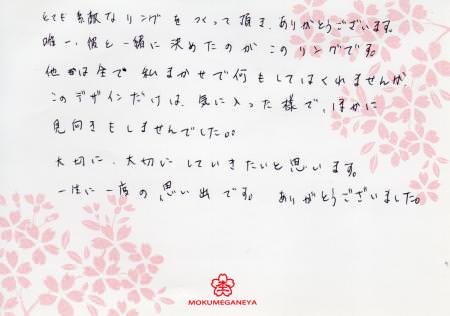 とても素敵なリングをつくって頂き、ありがとうございます。
唯一、彼と一緒に決めたのがこのリングです。
他は全て私まかせで何もしてはくれませんが、
このデザインだけは、気に入った様で、ほかに
見向きもしませんでした。。
大切に、大切にしていきたいと思います。
一生に一度の思い出です。ありがとうございました。
MOKUMEGANEYA